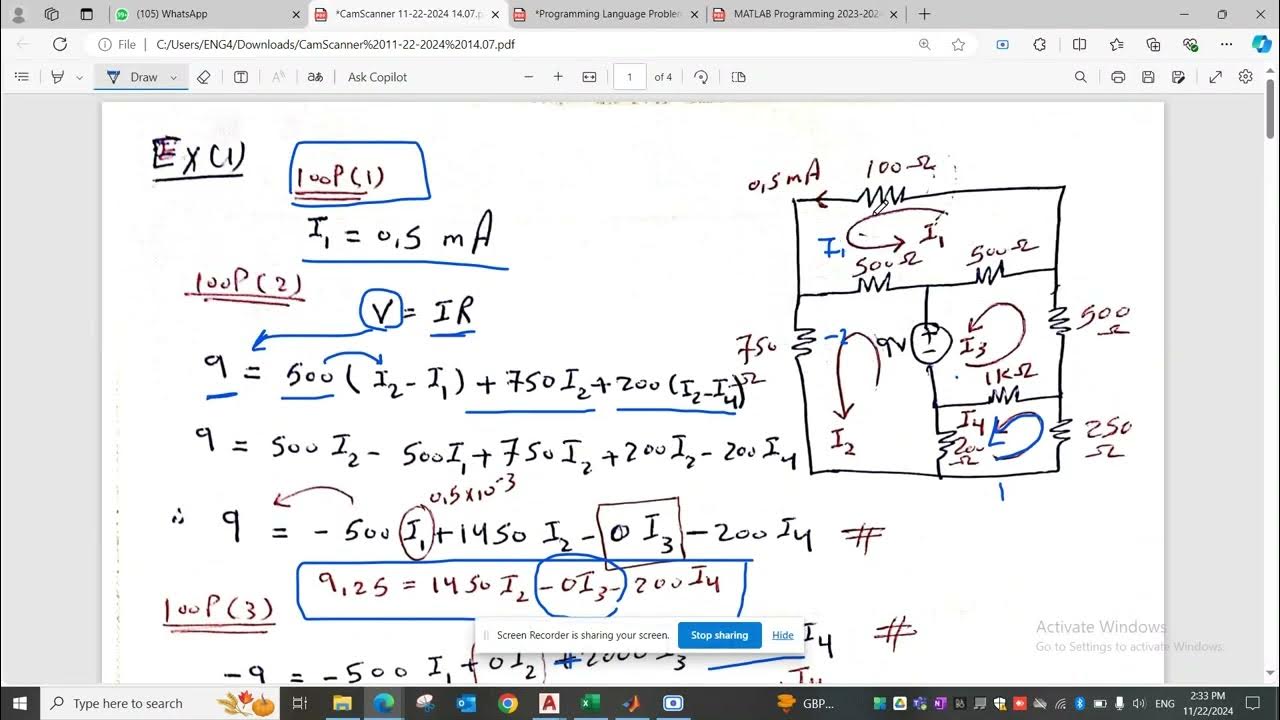 (105) WhatsApp
*CamScanner 11-22-2024 14.07.p
*Programming Language Problem
MATLAB Programming 2023-202
File
C:/Users/ENG4/Downloads/CamScanner%2011-22-2024%2014.07.pdf
Draw
Ask Copilot
1 of 4
EX(1)
loop(1)
I₁ = 0,5 mA
loop(2)
V = IR
9 = 500 (I₂ - I₁) + 750 I₂ + 200 (I₂-I₄)
9 = 500 I₂ - 500I₁ + 750I₂ + 200I₂ - 200I₄
0,5x10⁻³
∴ 9 = - 500 I₁ + 1450 I₂ - 0 I₃ - 200 I₄ #
9,25 = 1450 I₂ - 0I₃ - 200 I₄
loop(3)
I₄ #
-9 = -500 I₁ + 0I₂ + 2000 I₃
I₄
0,5 mA
100Ω
I₁
I₁
500Ω
500Ω
750
Ω
9V
+
-
I₃
500
Ω
1KΩ
I₂
I₄
200
Ω
250
Ω
Screen Recorder is sharing your screen.
Stop sharing
Hide
Activate Windows
Go to Settings to activate Windows.
Type here to search
GBP...
ENG
2:33 PM
11/22/2024